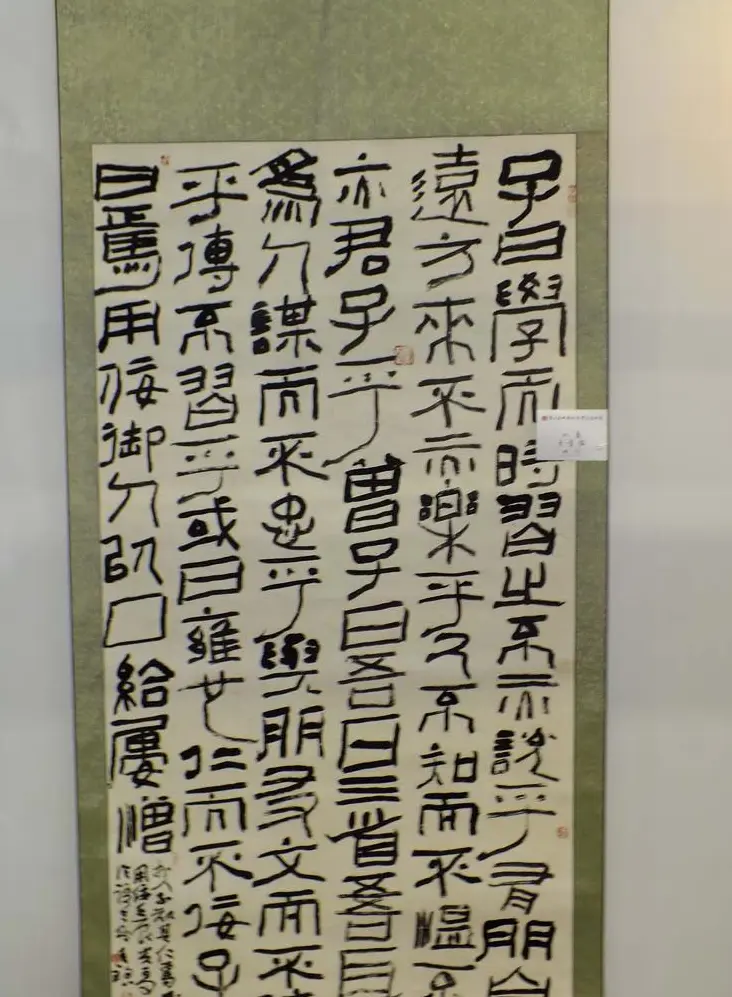 子曰學而時習之不亦說乎有朋自
遠方來不亦樂乎人不知而不慍不
亦君子乎曾子曰吾日三省吾身
為人謀而不忠乎與朋友交而不
乎傳不習乎或曰雍也仁而不佞子
曰焉用佞御人以口給屢憎
於人不知其仁焉
用佞